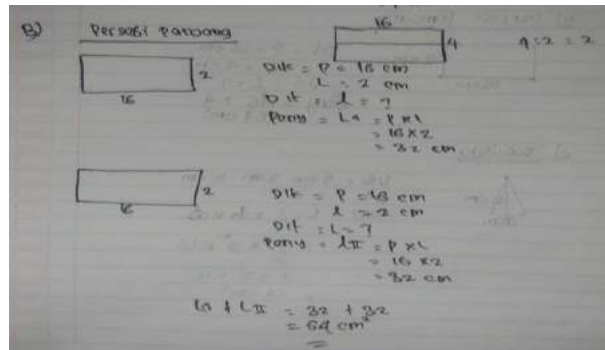 B) Persegi Panjang
16
4
4 : 2 = 2
2
16
Dik = P = 16 cm
L = 2 cm
Dit = L = ?
Peny = L1 = P x L
= 16 x 2
= 32 cm
2
16
Dik = P = 16 cm
L = 2 cm
Dit = L = ?
Peny = LII = P x L
= 16 x 2
= 32 cm
LI + LII = 32 + 32
= 64 cm²